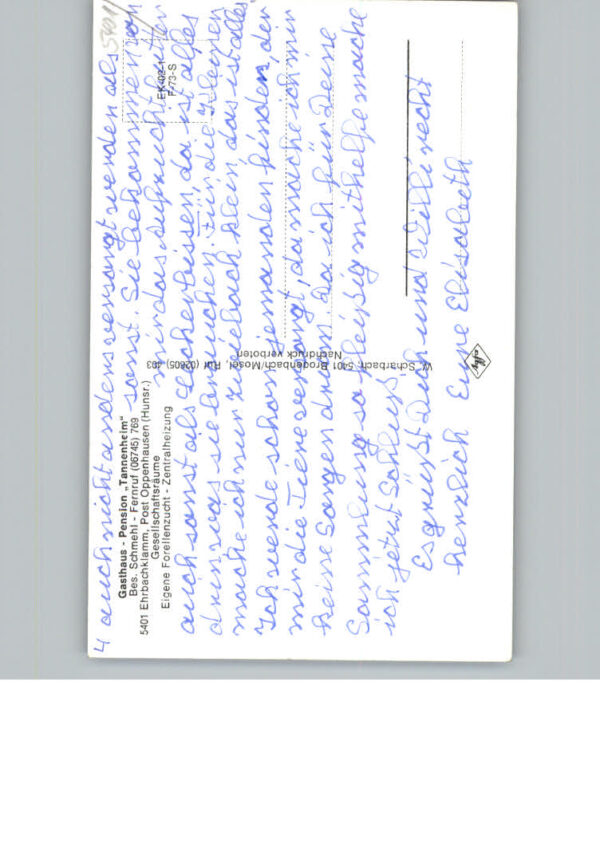 5401
4 auch nicht anders versorgt werden als
sonst. Sie bekommen von
mir das Aufzuchtfutter
auch sonst als Leckerbissen, da ist alles
drin was sie brauchen. Für die Kleinen
mache ich nur Zwieback klein das ist alles
Ich werde schon jemanden finden, der
mir die Tiere versorgt, da mache ich mir
keine Sorgen drum. Da ich für Deine
Sammlung so fleißig mithelfe mache
ich jetzt Schluß
Es grüßt Dich und Willi recht
herzlich Eure Elisabeth
Gasthaus - Pension „Tannenheim"
Bes. Schmehl - Fernruf (06745) 769
5401 Ehrbachklamm, Post Oppenhausen (Hunsr.)
Gesellschaftsräume
Eigene Forellenzucht - Zentralheizung
EK-02-1
F-73-S
W. Scharbach, 5401 Brodenbach/Mosel, Ruf (02605) 493
Nachdruck verboten
Agfa